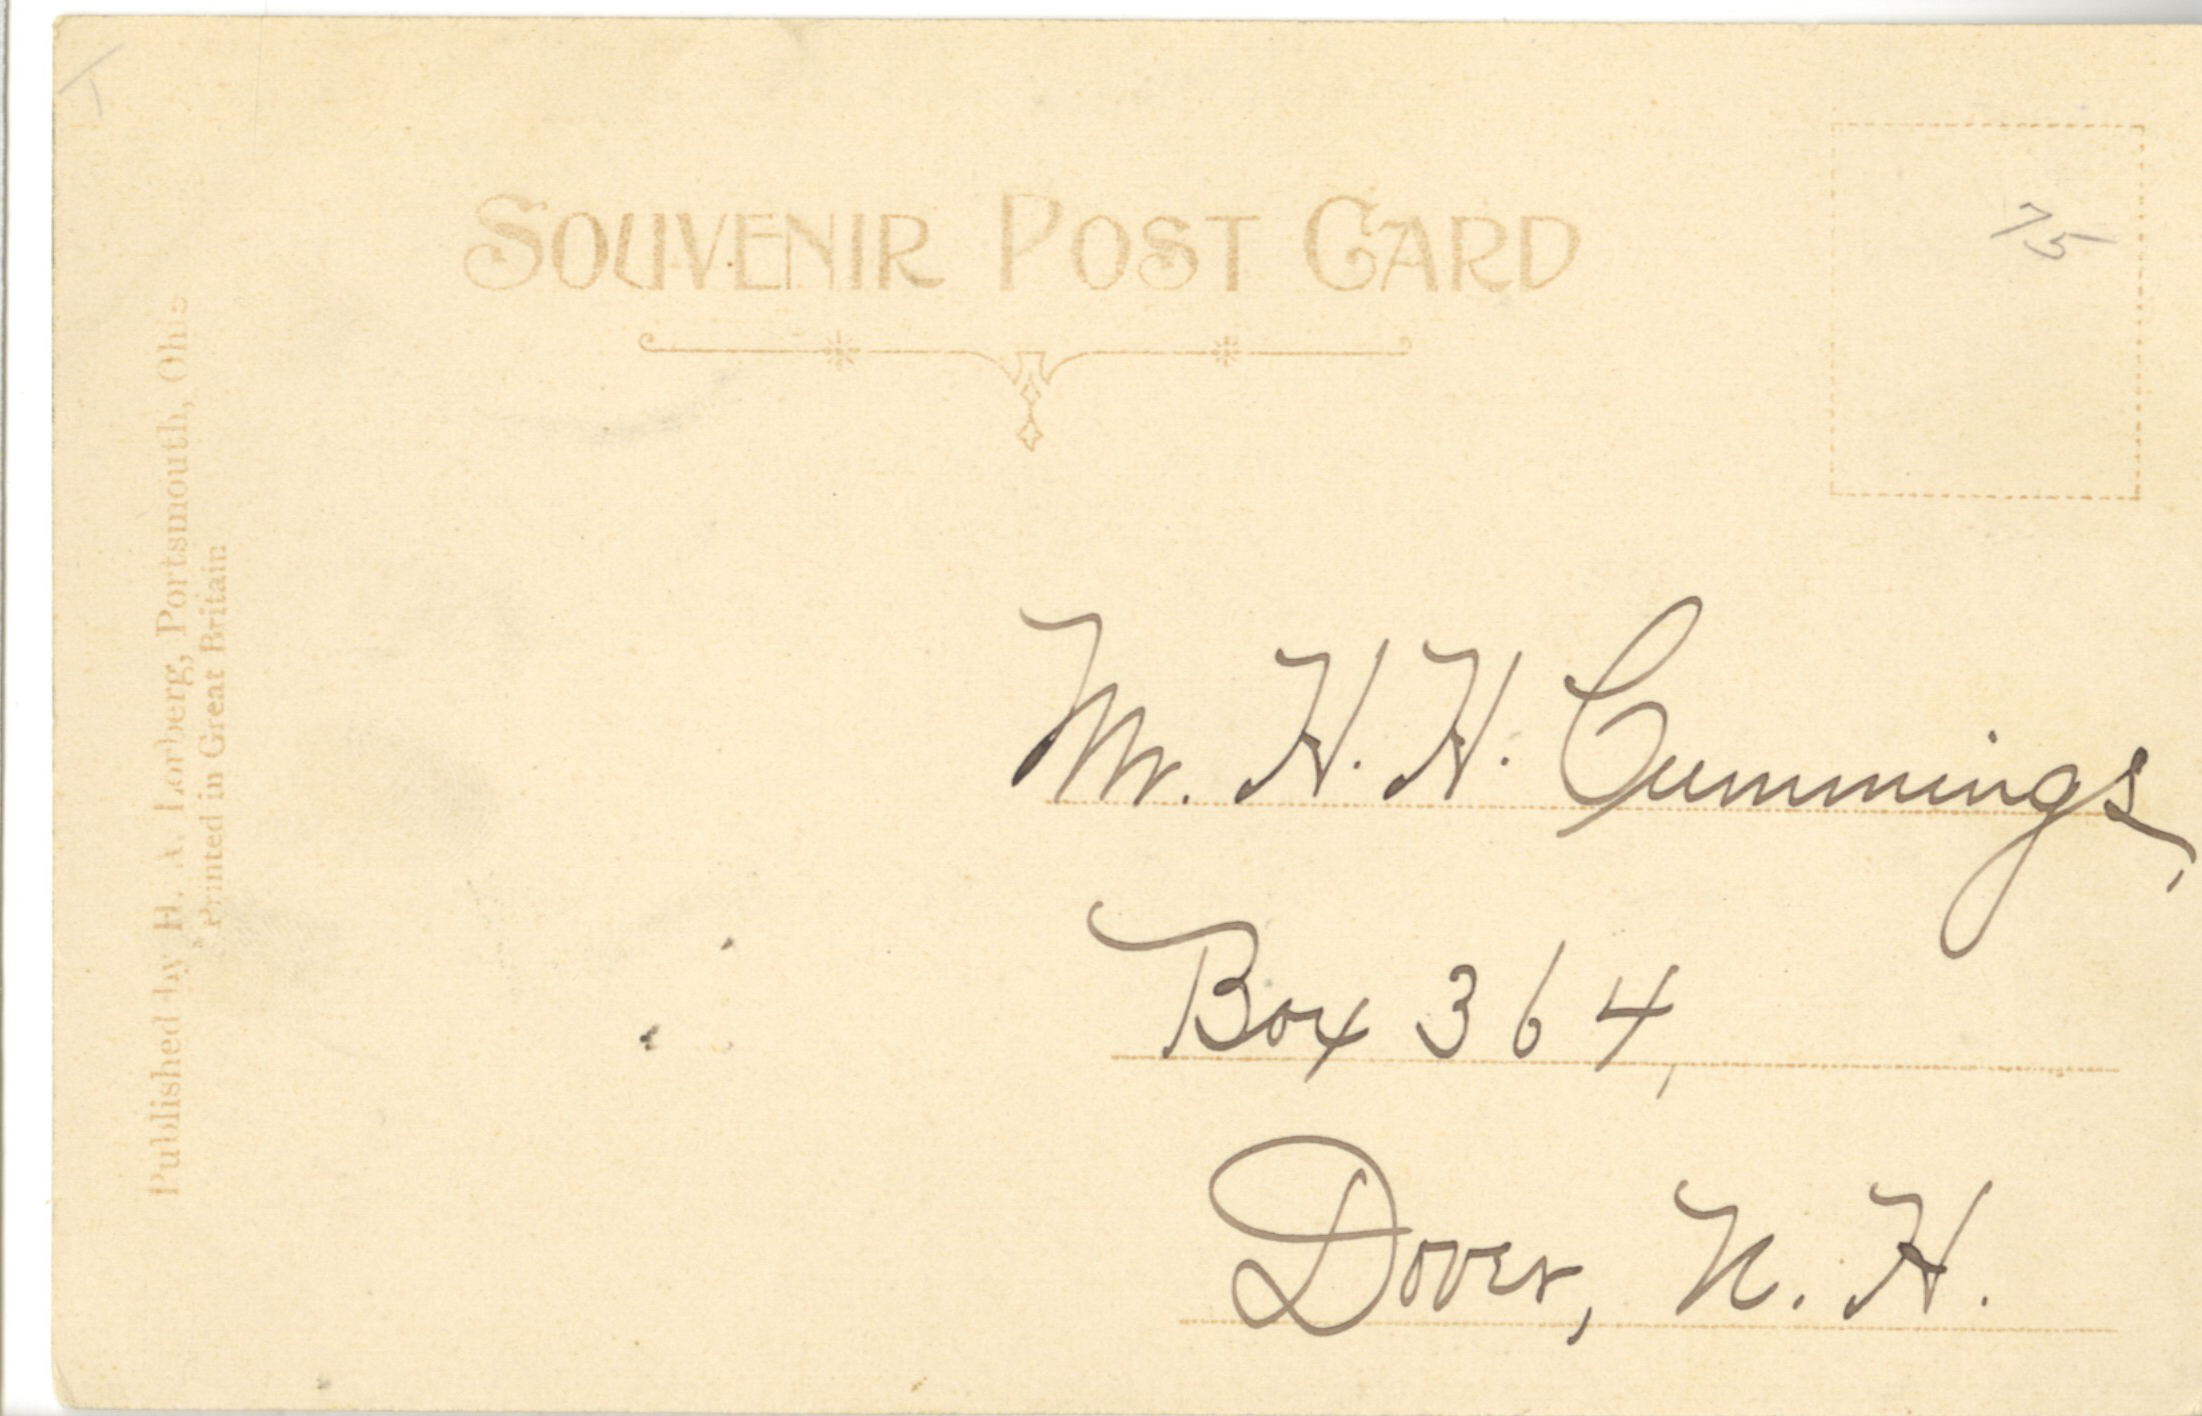 SOUVENIR POST CARD
75
Published by H. A. Lorberg, Portsmouth, Ohio
Printed in Great Britain
Mr. H. H. Cummings,
Box 364,
Dover, N. H.